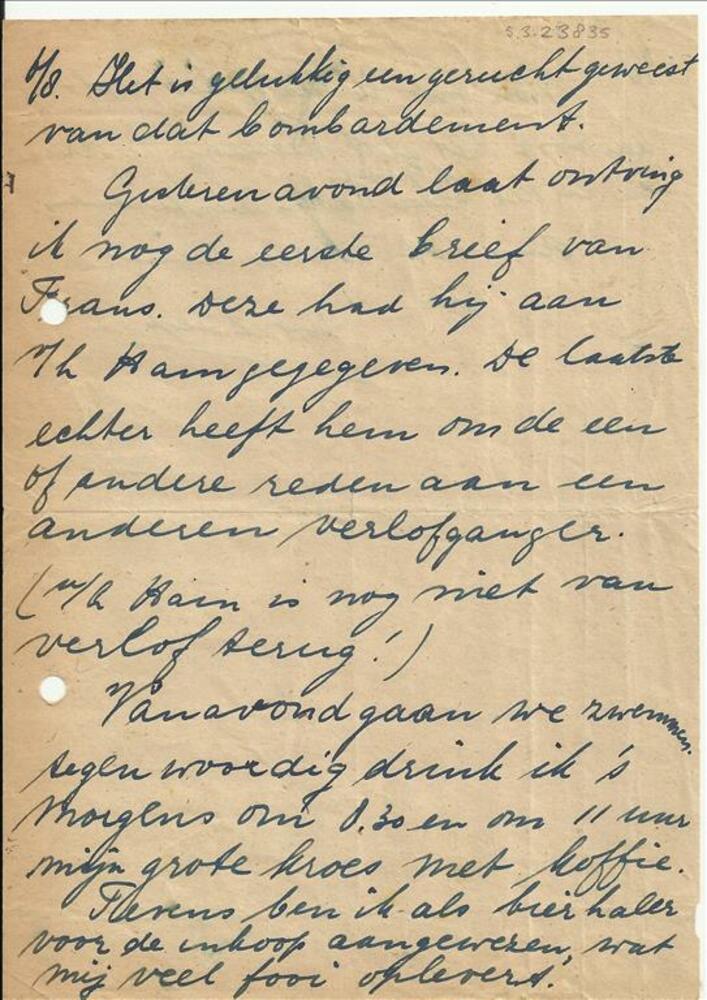 S.3.23835
6/8. Het is gelukkig een gerucht geweest
van dat bombardement.
Gisterenavond laat ontving
ik nog de eerste brief van
Frans. Deze had hij aan
v/h Ham gegegeven. De laatste
echter heeft hem om de een
of andere reden aan een
anderen verlofganger.
(v/h Ham is nog niet van
verlof terug!)
Vanavond gaan we zwemmen.
tegenwoordig drink ik 's
morgens om 8.30 en om 11 uur
mijn grote kroes met koffie.
Tevens ben ik als bierhaler
voor de inkoop aangewezen, wat
mij veel fooi oplevert.